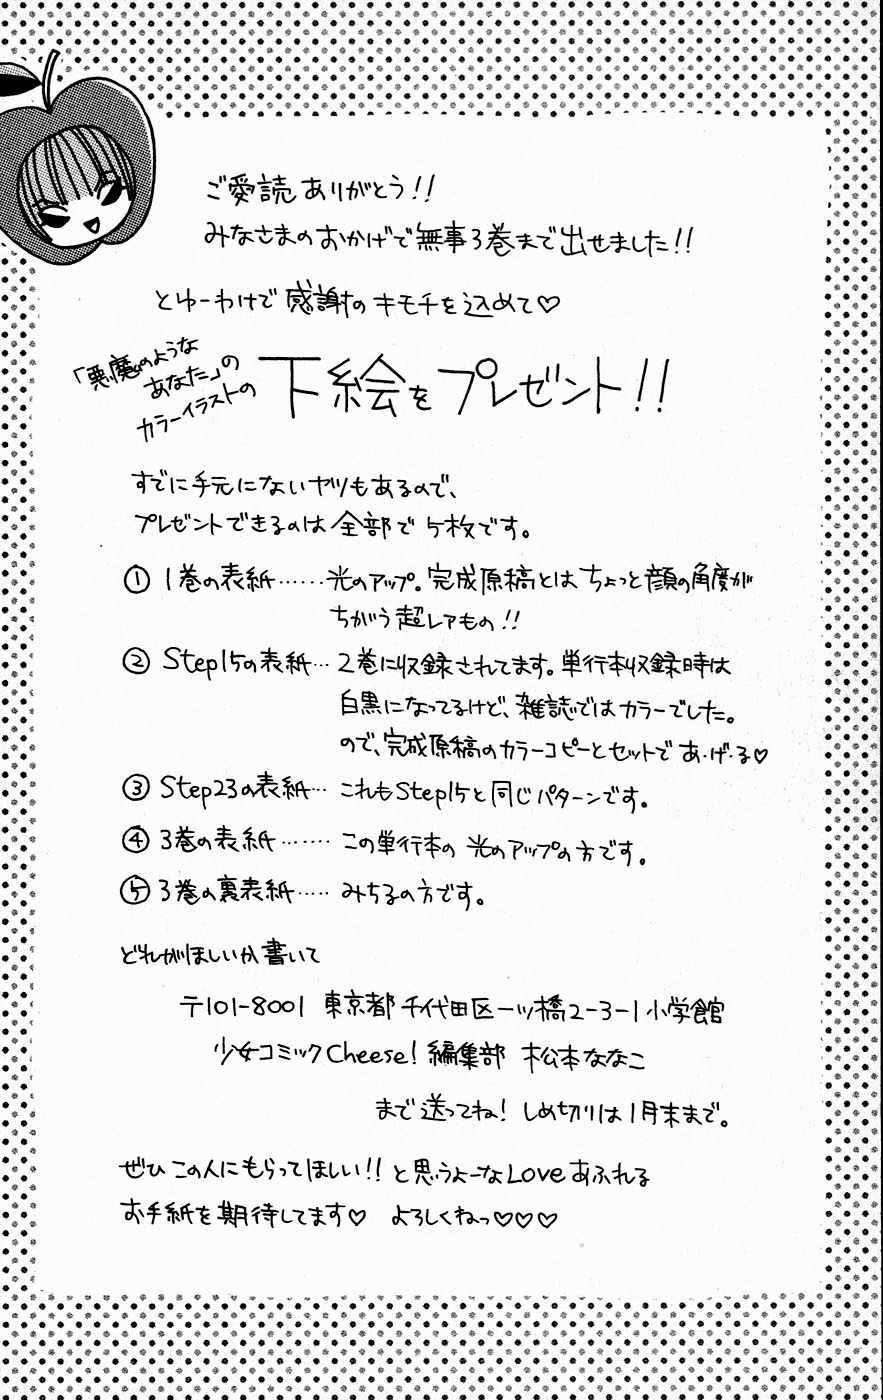 ご愛読ありがとう!!
みなさまのおかげで無事3巻まで出せました!!
とゆーわけで感謝のキモチを込めて♡
「悪魔のような
あなた」の
カラーイラストの
下絵をプレゼント!!
すでに手元にないヤツもあるので、
プレゼントできるのは全部で5枚です。
① 1巻の表紙……光のアップ。完成原稿とはちょっと顔の角度が
ちがう超レアもの!!
② Step15の表紙… 2巻に収録されてます。単行本収録時は
白黒になってるけど、雑誌ではカラーでした。
ので、完成原稿のカラーコピーとセットで あ・げ・る♡
③ Step23の表紙… これもStep15と同じパターンです。
④ 3巻の表紙…… この単行本の 光のアップの方です。
⑤ 3巻の裏表紙…… みちるの方です。
どれがほしいか書いて
〒101-8001 東京都千代田区一ツ橋2-3-1小学館
少女コミックCheese!編集部 松本ななこ
まで送ってね! しめ切りは1月末まで。
ぜひこの人にもらってほしい!!と思うよーなLoveあふれる
お手紙を期待してます♡ よろしくねっ♡♡♡